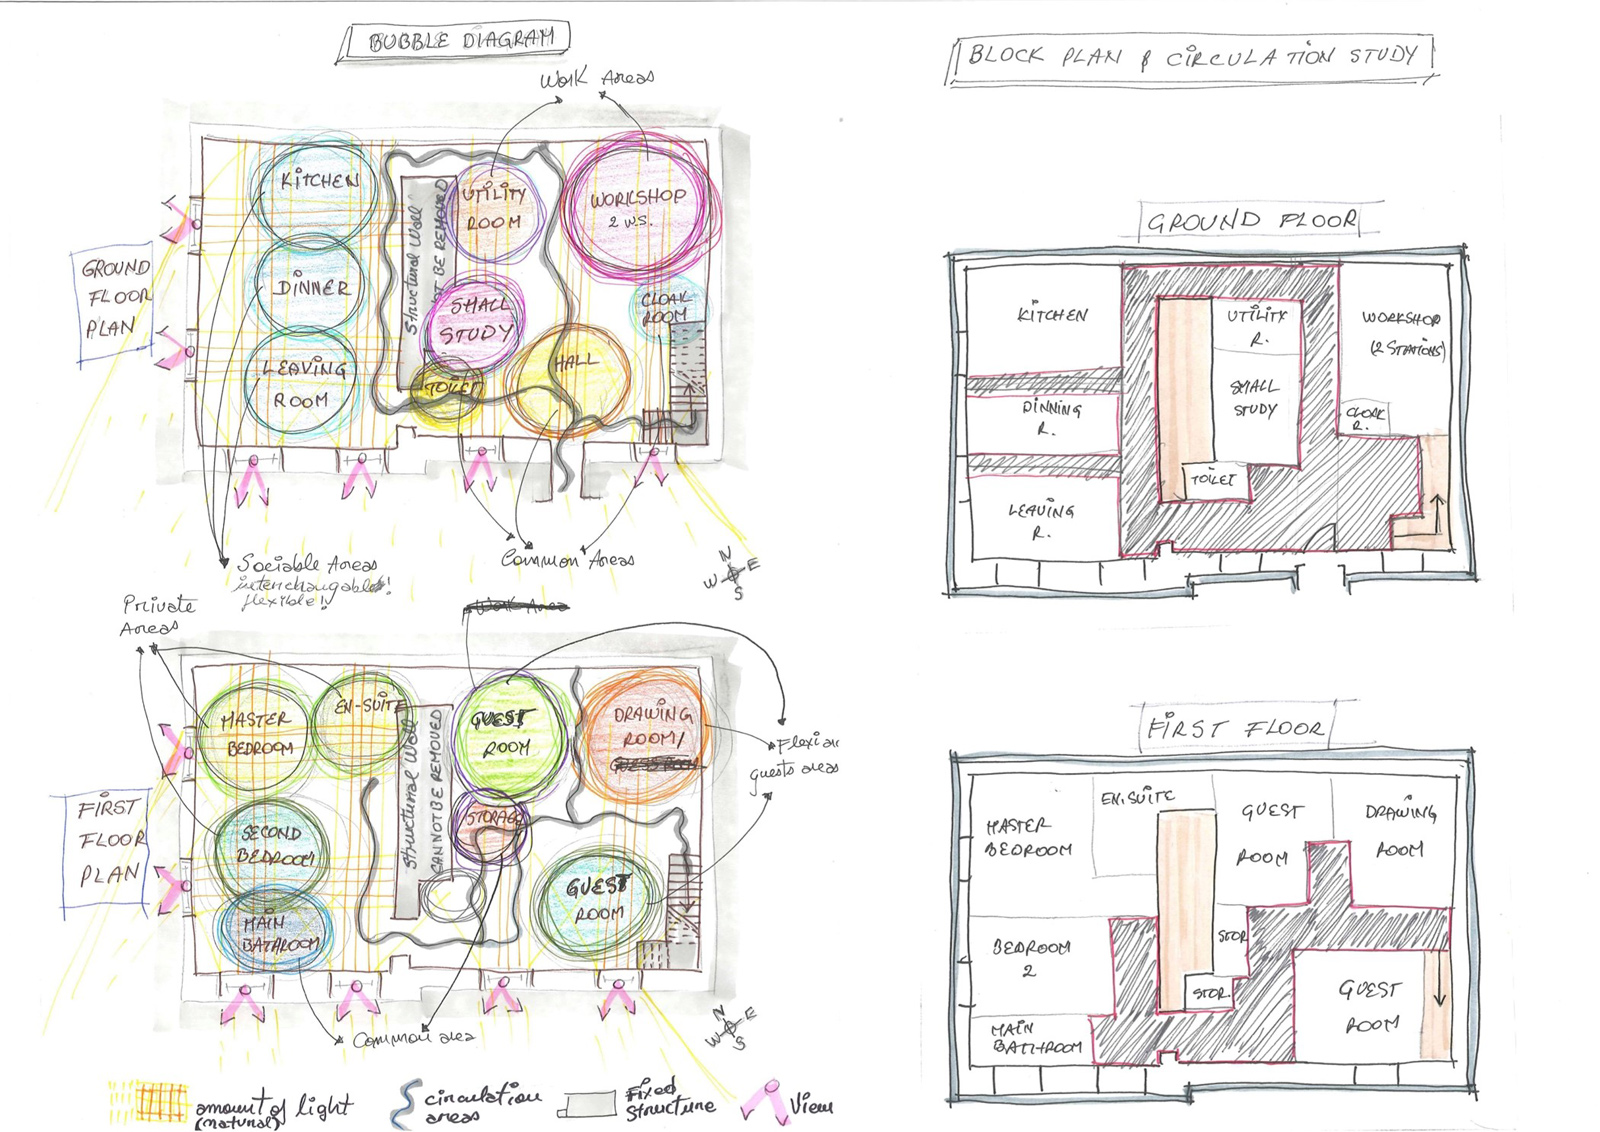 BUBBLE DIAGRAM
Work Areas
KITCHEN
DINNER
LEAVING
ROOM
Structural Wall
NOT BE REMOVED
UTILITY
ROOM
SMALL
STUDY
TOILET
WORKSHOP
2 W.S.
CLOAK
ROOM
HALL
GROUND
FLOOR
PLAN
Sociable Areas
interchangable!
flexible!
Common Areas
N
W E
S
Private
Areas
MASTER
BEDROOM
EN-SUITE
SECOND
BEDROOM
MAIN
BATHROOM
Structural Wall
CAN NOT BE REMOVED
GUEST
ROOM
STORAGE
DRAWING
ROOM/
GUEST
ROOM
guests areas
FIRST
FLOOR
PLAN
Common area
N
W E
S
amount of light
(natural)
circulation
areas
Fixed
Structure
View
BLOCK PLAN & CIRCULATION STUDY
GROUND FLOOR
KITCHEN
DINNING
R.
LEAVING
R.
UTILITY
R.
SMALL
STUDY
TOILET
WORKSHOP
(2 STATIONS)
CLOAK
R.
FIRST FLOOR
MASTER
BEDROOM
EN.SUITE
GUEST
ROOM
DRAWING
ROOM
BEDROOM
2
STOR.
STOR.
MAIN
BATHROOM
GUEST
ROOM